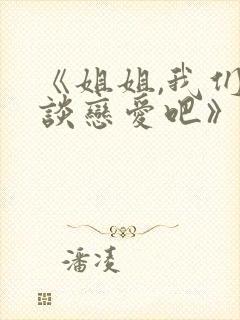 《姐姐,我们
談戀愛吧》
潘凌